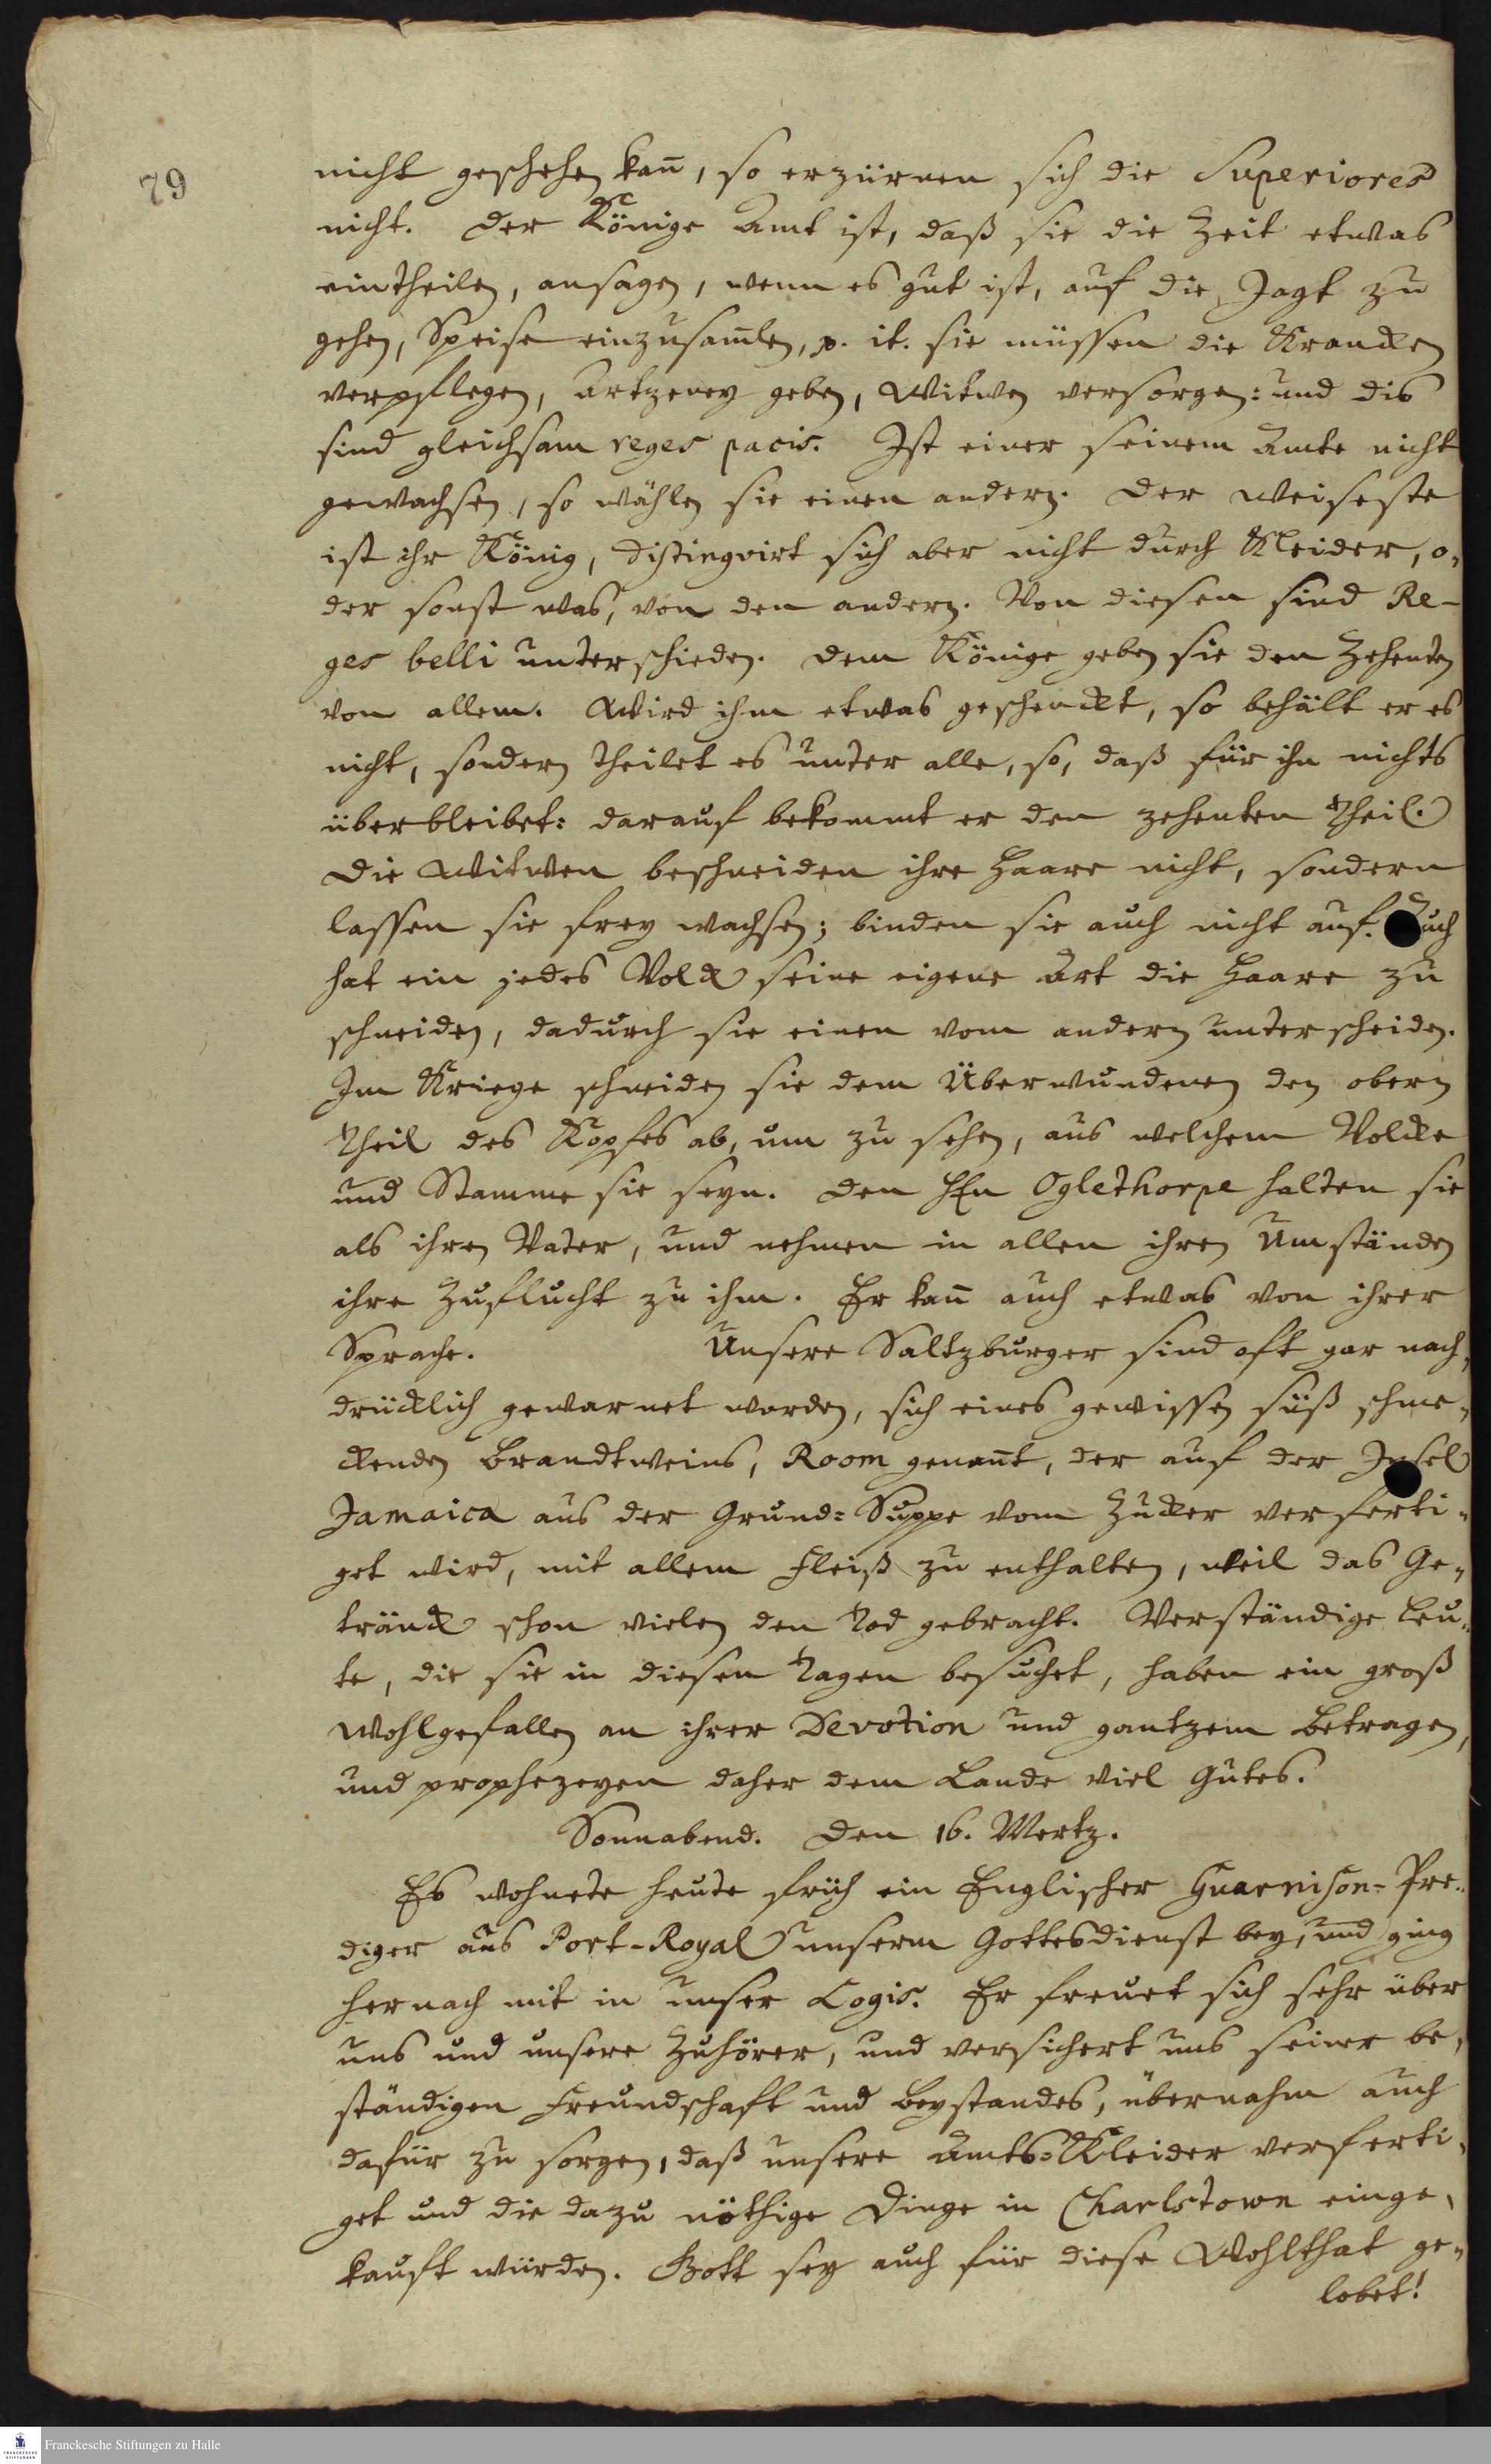 79
nicht geschehen kan̄, so erzürnen sich die Superiores
nicht. Der Könige Amt ist, daß sie die Zeit etwas
eintheilen, ansagen, wenn es gut ist, auf die Jagt zu
gehen, Speise einzusam̄len, p. it. sie müssen die Krancken
verpflegen, Artzeney geben, Witwen versorgen: und dis
sind gleichsam reges pacis. Ist einer seinem Amte nicht
gewachsen, so wählen sie einen andern. Der weiseste
ist ihr König, distingvirt sich aber nicht durch Kleider, o,
der sonst was, von den andern. Von diesen sind Re-
ges belli unterschieden. Dem Könige geben sie den Zehenten
von allem. Wird ihm etwas geschenckt, so behält er es
nicht, sondern theilet es unter alle, so, daß für ihn nichts
überbleibet: darauf bekommt er den zehenten Theil.
Die Witwen beschneiden ihre Haare nicht, sondern
lassen sie frey wachsen; binden sie auch nicht auf. Auch
hat ein jedes Volck seine eigene Art die Haare zu
schneiden, dadurch sie einen vom andern unterscheiden.
Im Kriege schneiden sie dem Überwundenen den obern
Theil des Kopfes ab, um zu sehen, aus welchem Volcke
und Stamme sie seyn. Den HEn Oglethorpe halten sie
als ihren Vater, und nehmen in allen ihren Umständen
ihre Zuflucht zu ihm. Er kan̄ auch etwas von ihrer
Sprache. Unsere Saltzburger sind oft gar nach,
drücklich gewarnet worden, sich eines gewissen süß schme,
ckenden Brandtweins, Room genan̄t, der auf der Insel
Jamaica aus der Grund=Suppe vom Zucker verferti,
get wird, mit allem Fleiß zu enthalten, weil das Ge,
tränck schon vielen den Tod gebracht. Verständige Leu,
te, die sie in diesen Tagen besuchet, haben ein groß
Wohlgefallen an ihrer Devotion und gantzem Betragen,
und prophezeyen daher dem Lande viel Gutes.
Sonnabend. Den 16. Mertz.
Es wohnete heute früh ein Englischer Guarnison-Pre,
diger aus Port-Royal unserm Gottesdienst bey, und ging
hernach mit in unser Logis. Er freuet sich sehr über
uns und unsere Zuhörer, und versichert uns seiner be,
ständigen Freundschaft und Beystandes, übernahm auch
dafür zu sorgen, daß unsere Amts=Kleider verferti,
get und die dazu nöthige Dinge in Charlstown einge,
kauft würden. Gott sey auch für diese Wohlthat ge,
lobet!
Franckesche Stiftungen zu Halle